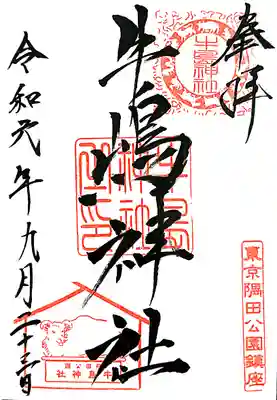 奉拝
牛嶋神社
牛嶋神社
東京隅田公園鎮座
牛島神社
令和元年九月二十三日